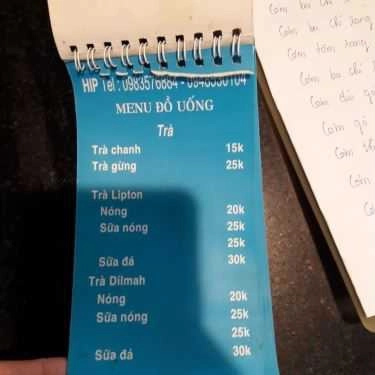 HIP Tel : 0983576884 -
MENU ĐỒ UỐNG
Trà
Trà chanh 15k
Trà gừng 25k
Trà Lipton
Nóng 20k
Sữa nóng 25k
25k
Sữa đá 30k
Trà Dilmah
Nóng 20k
Sữa nóng 25k
25k
Sữa đá 30k
Cơm
Cơm ba chỉ rang
Cơm tôm rang
Cơm ba chỉ
Cơm
Cơm gà
Cơm
Cơm